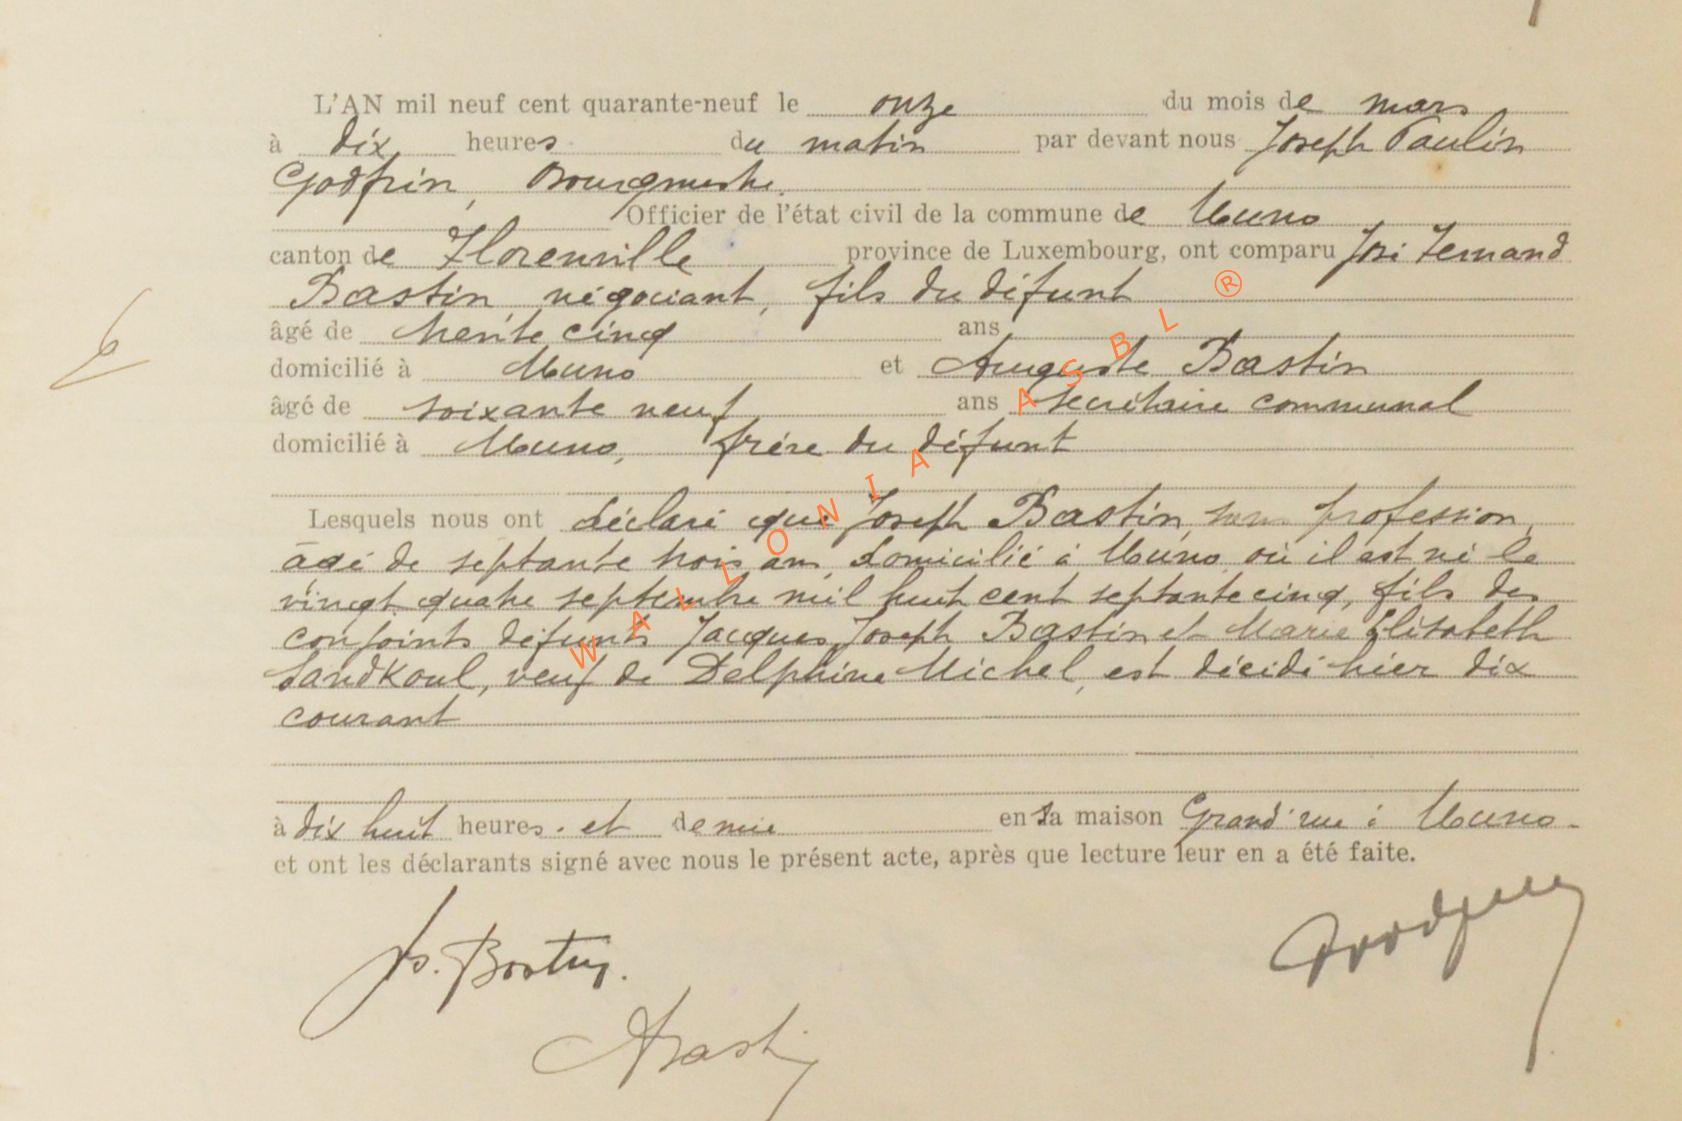 L'AN mil neuf cent quarante-neuf le onze du mois de mars
à dix heures du matin par devant nous Joseph Paulin
Godfrin, Bourgmestre.
Officier de l'état civil de la commune de Muno
canton de Florenville province de Luxembourg, ont comparu José Fernand
Bastin négociant, fils du défunt
âgé de trente cinq ans
domicilié à Muno et Auguste Bastin
âgé de soixante neuf ans secrétaire communal
domicilié à Muno, frère du défunt
Lesquels nous ont déclaré que Joseph Bastin, sans profession,
âgé de septante trois ans, domicilié à Muno où il est né le
vingt quatre septembre mil huit cent septante cinq, fils des
conjoints défunts Jacques Joseph Bastin et Marie Elisabeth
Sandkoul, veuf de Delphine Michel, est décédé hier dix
courant
à dix huit heures. et demie en sa maison Grand'rue à Muno.
et ont les déclarants signé avec nous le présent acte, après que lecture leur en a été faite.
Js. Bastin.
ABastin
WALLONIA ASBL ®